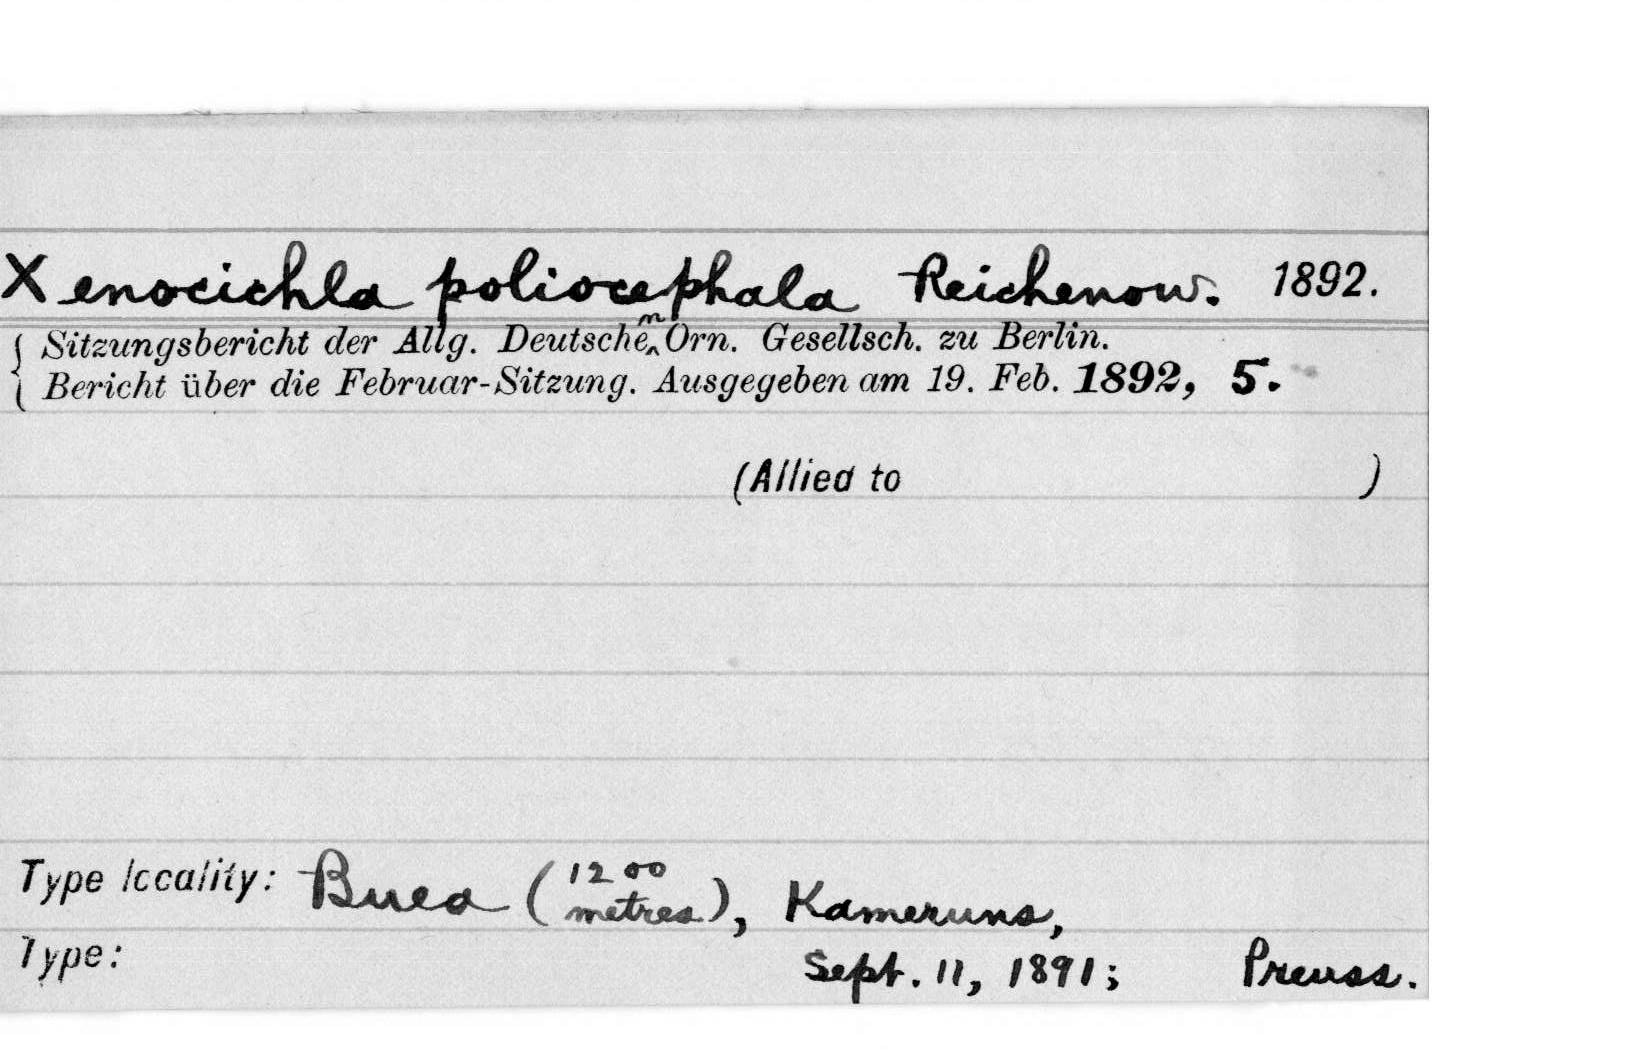 Xenocichla poliocephala Reichenow. 1892.
Sitzungsbericht der Allg. Deutschen Orn. Gesellsch. zu Berlin.
Bericht über die Februar-Sitzung. Ausgegeben am 19. Feb. 1892, 5.
(Allied to )
Type locality: Buea (1200 metres), Kameruns,
Type: Sept. 11, 1891; Preuss.